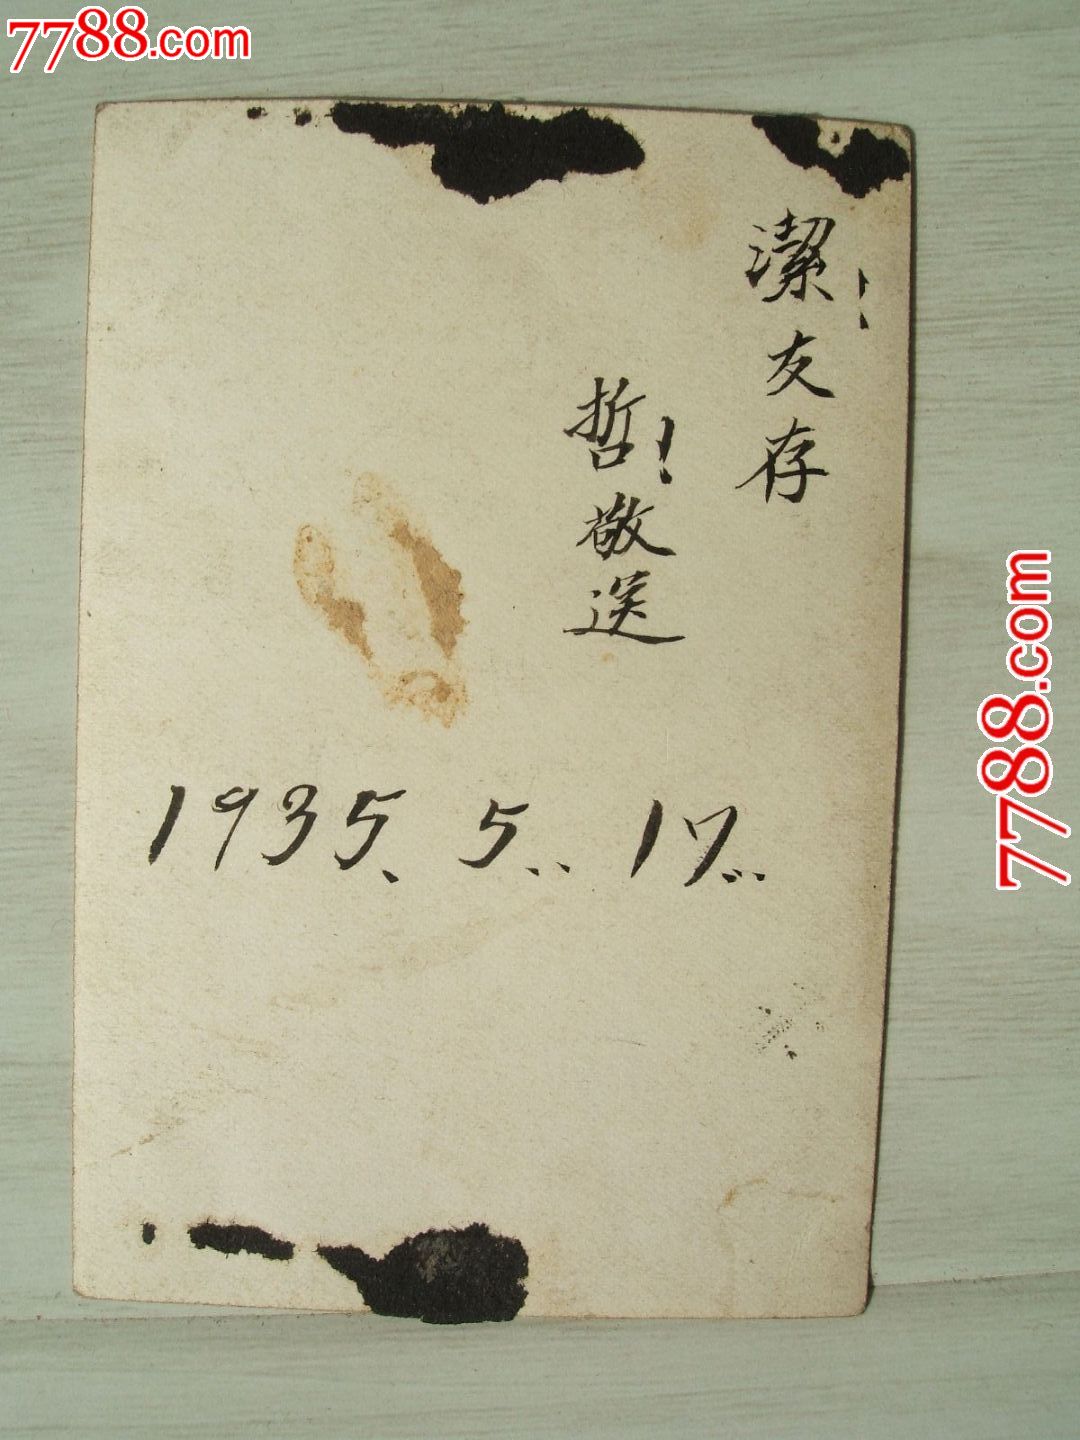 7788.com
潔！友存
哲！敬送
1935. 5.. 17...
7788.com